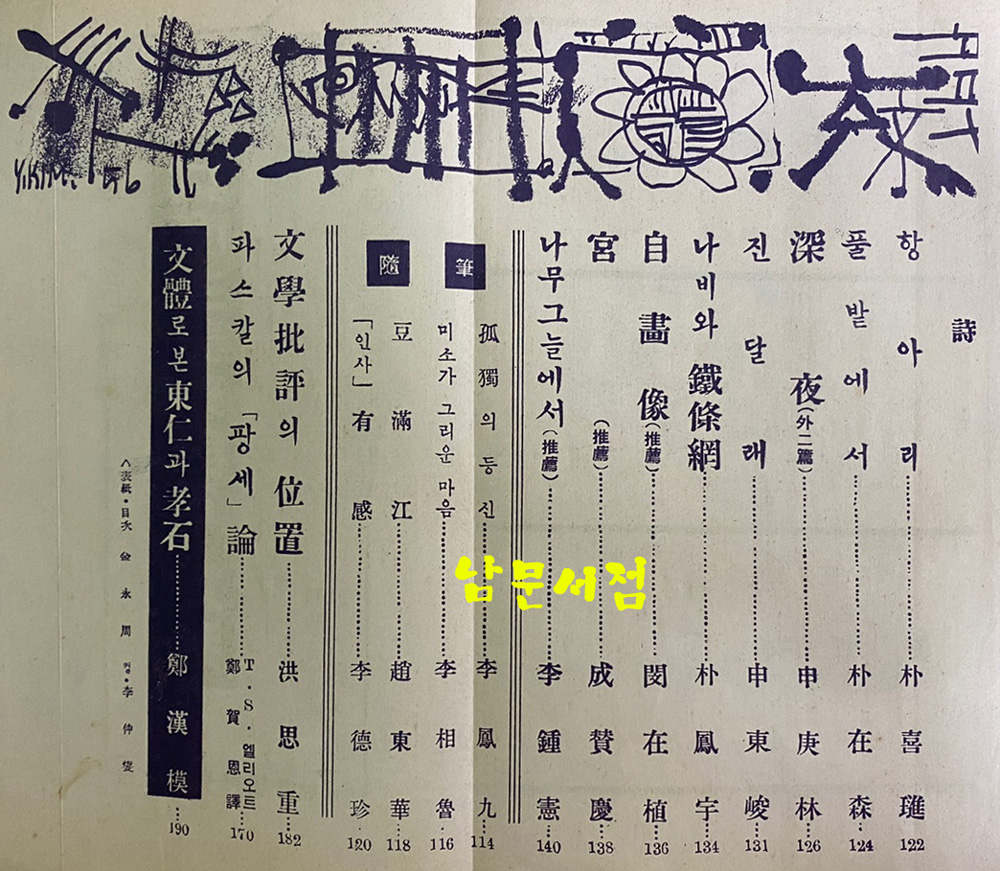 詩
항아리 朴喜璡 122
풀밭에서 朴在森 124
深夜(外二篇) 申庚林 126
진달래 申東峻 131
나비와 鐵條網 朴鳳宇 134
自畵像(推薦) 閔在植 136
宮(推薦) 成贊慶 138
나무그늘에서(推薦) 李鍾憲 140
隨筆
孤獨의 등신 李鳳九 114
미소가 그리운 마음 李相魯 116
豆滿江 趙東華 118
「인사」有感 李德珍 120
文學批評의 位置 洪思重 182
파스칼의「팡세」論 T.S.엘리오트 鄭賀恩譯 170
文體로 본 東仁과 孝石 鄭漢模 190
表紙・目次 金永周 컷・李仲燮
남문서점